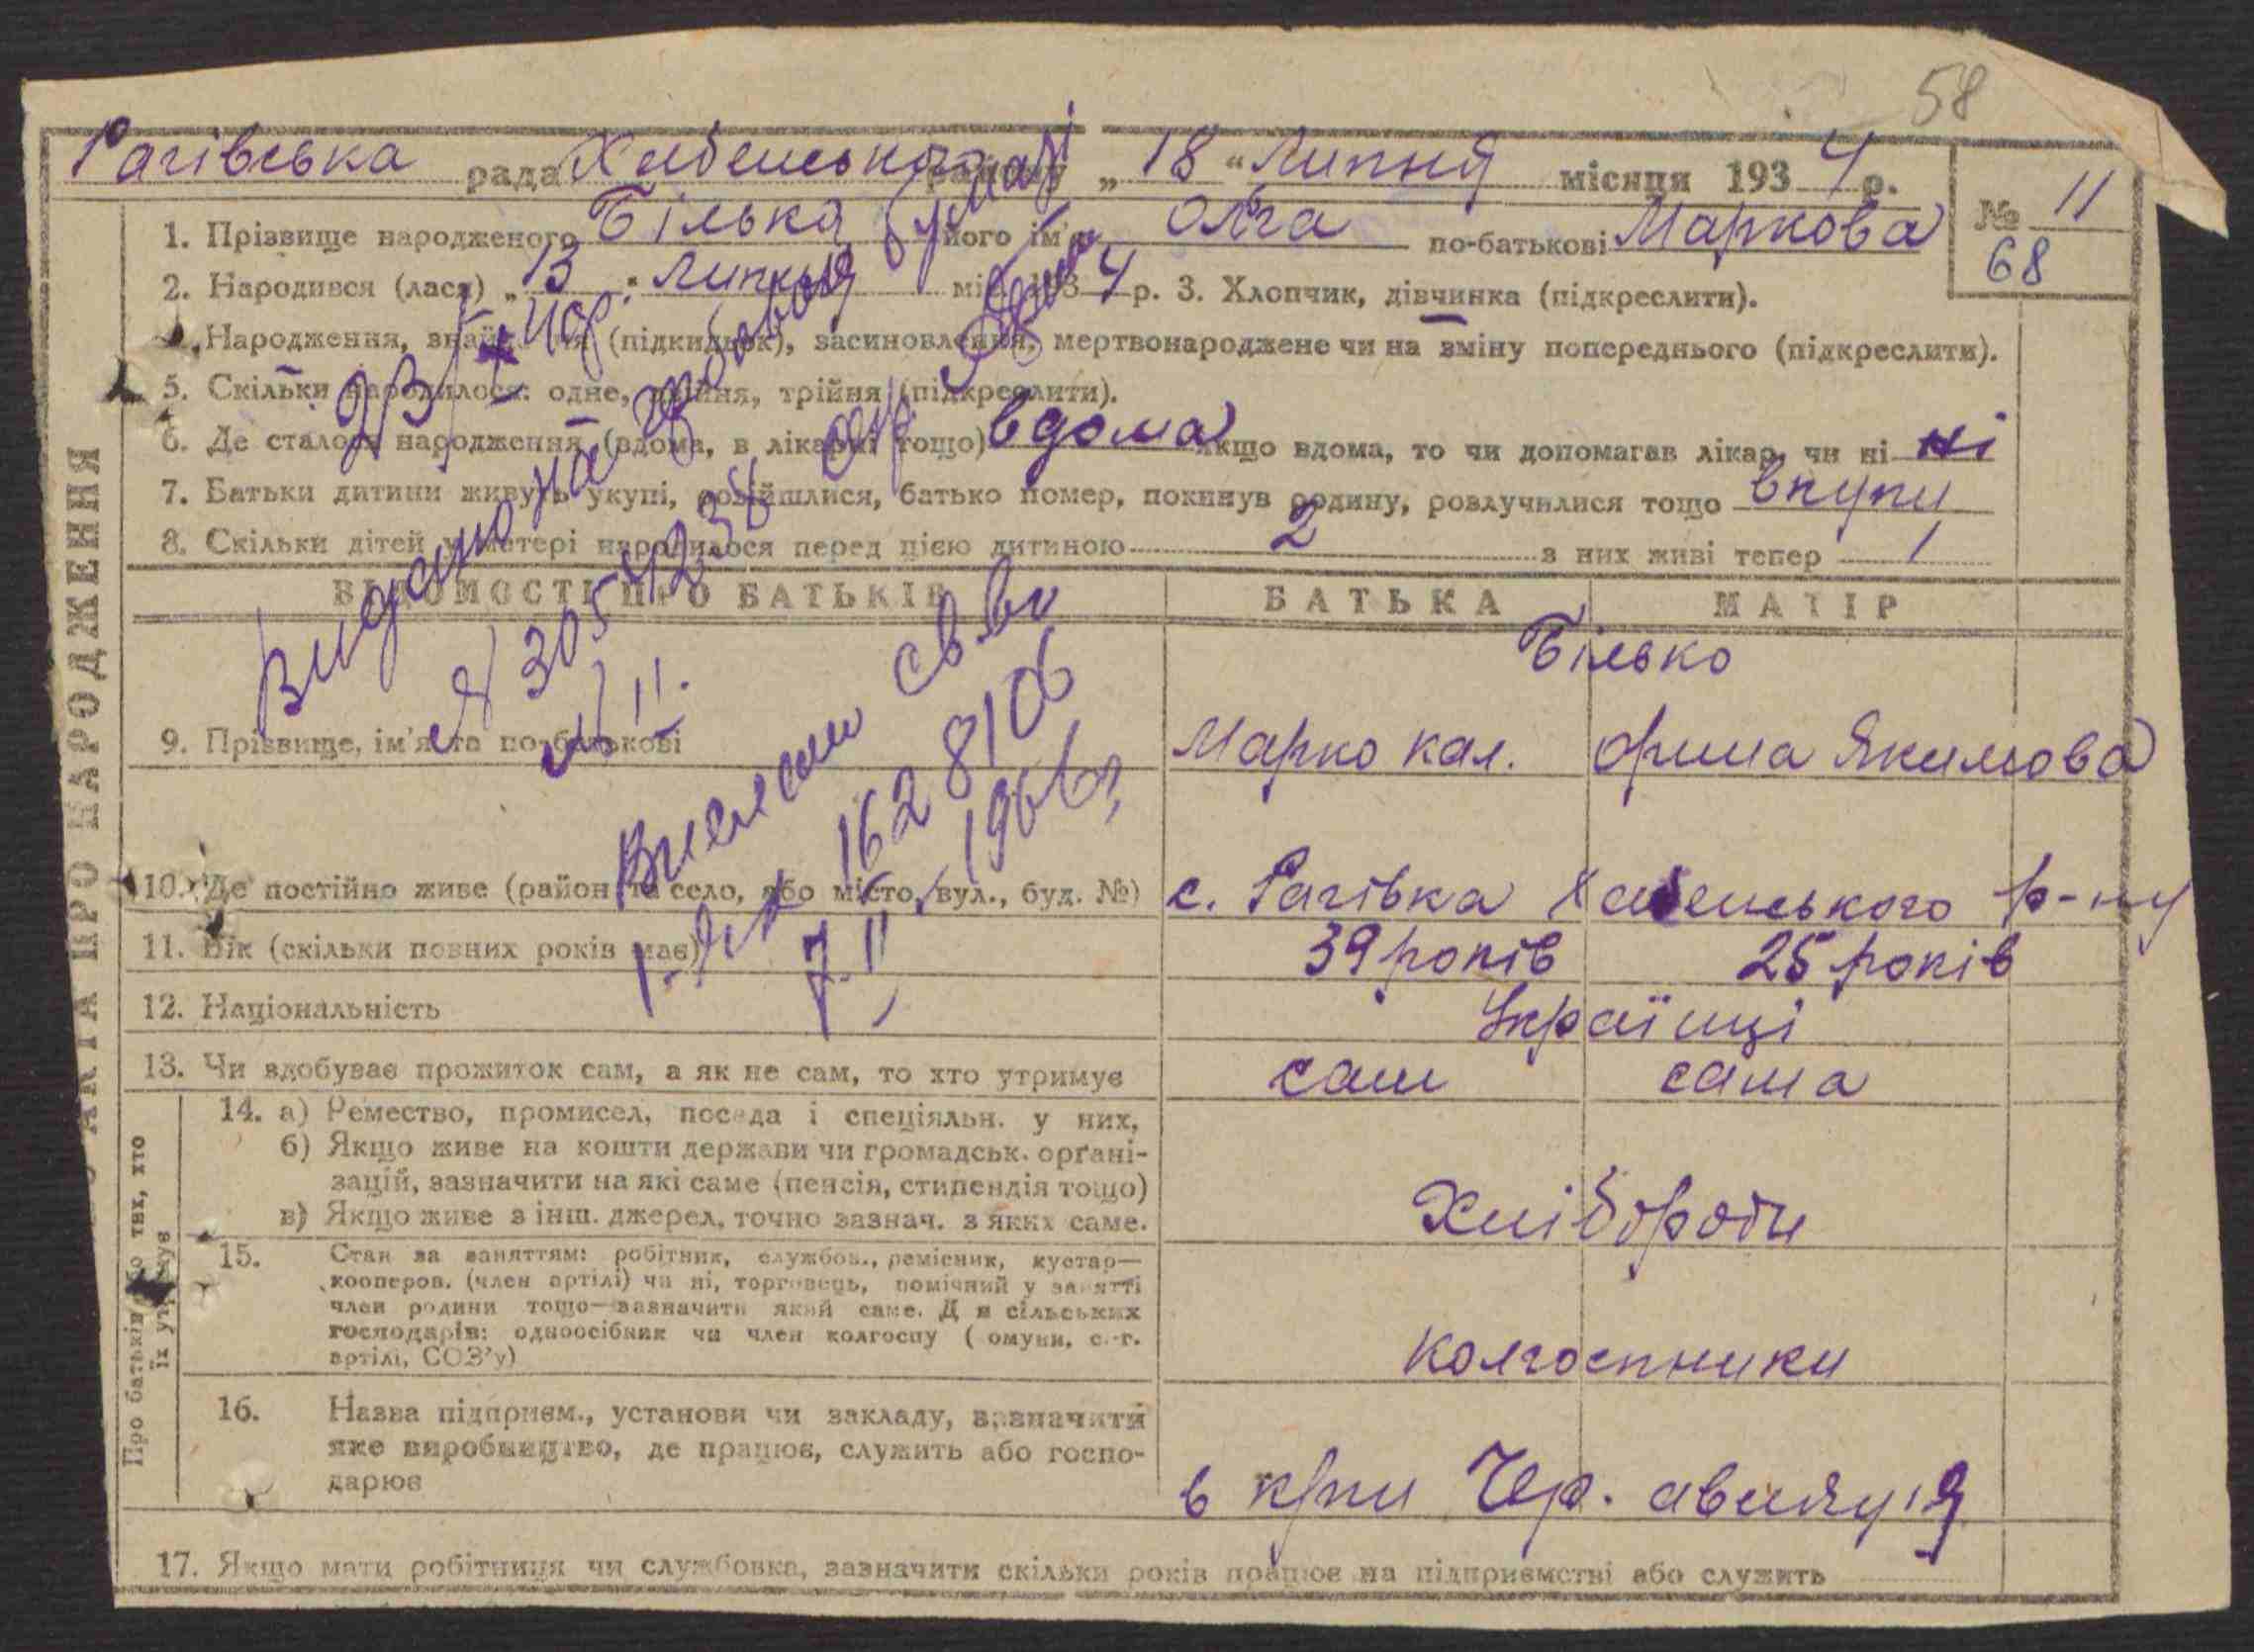 58
Рагівська рада Хабенського району „ 18 “ Липня місяця 1934 р.
№ 11
68
1. Прізвище народженого Білько його ім'я Олга по-батькові Маркова
2. Народився (лася) „ 13 “ Липня міс. 1934 р. 3. Хлопчик, дівчинка (підкреслити).
4. Народження, (підкидьок), засиновлення, мертвонароджене чи на зміну попереднього (підкреслити).
5. Скільки народилося: одне, двійня, трійня (підкреслити).
6. Де сталося народження (вдома, в лікарні тощо) вдома якщо вдома, то чи допомагав лікар, чи ні ні
7. Батьки дитини живуть укупі, розійшлися, батько помер, покинув родину, розлучилися тощо вкупи
8. Скільки дітей у матері народилося перед цією дитиною 2 з них живі тепер 1
ВІДОМОСТІ ПРО БАТЬКІВ БАТЬКА МАТІР
Білько
9. Прізвище, ім'я та по-батькові Марко кал. Орина Якимова
10. Де постійно живе (район та село, або місто, вул., буд. №) с. Рагівка Хабенського р-ну
11. Вік (скільки повних років має) 39 років 25 років
12. Національність Українці
13. Чи здобуває прожиток сам, а як не сам, то хто утримує сам сама
14. а) Ремество, промисел, посада і спеціяльн. у них,
б) Якщо живе на кошти держави чи громадськ. орґані-
зацій, зазначити на які саме (пенсія, стипендія тощо)
в) Якщо живе з інш. джерел, точно зазнач. з яких саме.
Хлібороби
15. Стан за заняттям: робітник, службов., ремісник, кустар—
кооперов. (член артілі) чи ні, торговець, помічний у занятті
член родини тощо—зазначити який саме. Для сільських
господарів: одноосібник чи член колгоспу (комуни, с.-г.
артілі, СОЗ'у)
Колгоспники
16. Назва підприєм., установи чи закладу, зазначити
яке виробництво, де працює, служить або госпо-
дарює
в Чер.
17. Якщо мати робітниця чи службовка, зазначити скільки років працює на підприємстві або служить
АКТА ПРО НАРОДЖЕННЯ
Про батьків або тих, хто
їх утримує
Видано на
305
II.
св-во
1628106
7. II 1966 г.